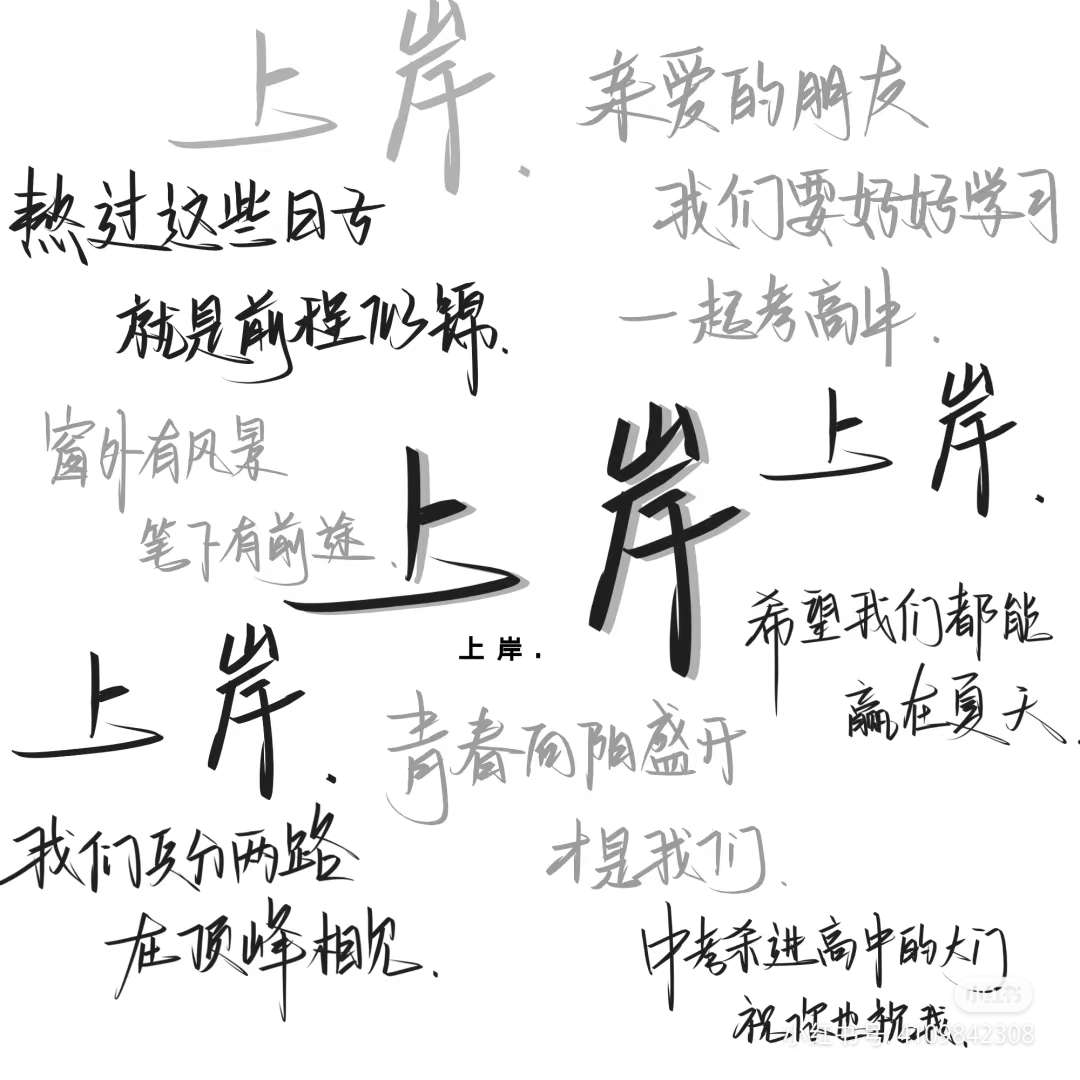 上岸.
亲爱的朋友
我们要好好学习
一起考高中.
熬过这些日子
就是前程似锦.
窗外有风景
笔下有前途.
上岸.
上岸
上岸.
希望我们都能
赢在夏天.
上岸.
青春向阳盛开
才是我们.
我们兵分两路
在顶峰相见.
中考杀进高中的大门
祝你也祝我.
小红书
小红书号:4109842308